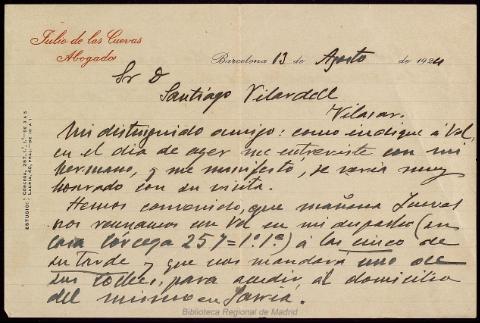 Julio de las Cuevas
Abogado
Barcelona 13 de Agosto de 1924
Sr D
Santiago Vilardell
Vilasar.
Mi distinguido amigo: como indiqué á Vd,
en el dia de ayer me entrevisté con mi
hermano, y me manifestó, se veria muy
honrado con su visita.
Hemos convenido, que mañana Jueves
nos reunamos con Vd en mi despacho (en
casa Corcega 257=1.º1.ª) á las cinco de
su tarde, y que nos mandará uno de
sus coches, para acudir al domicilio
del mismo en Sarria.
ESTUDIO: CORCEGA, 257, 1.º, 1.ª - DE 3 A 5
Biblioteca Regional de Madrid